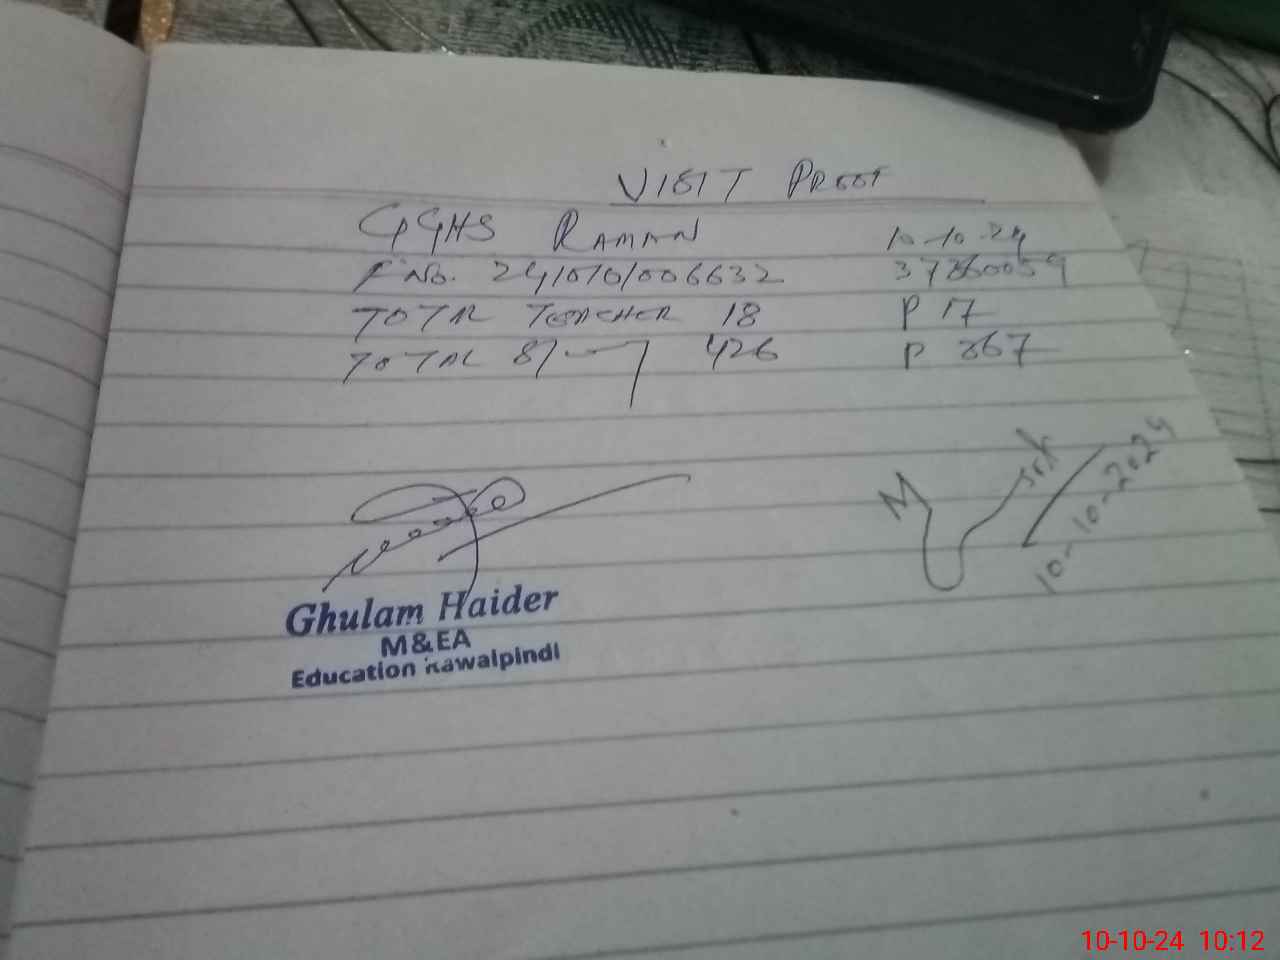 VISIT PROOF
GGHS RAMAN 10-10-24
F No. 24/0/0/006632 37360059
TOTAL TEACHER 18 P 17
TOTAL 426 P 367
10-10-2024
Ghulam Haider
M&EA
Education Rawalpindi
10-10-24 10:12